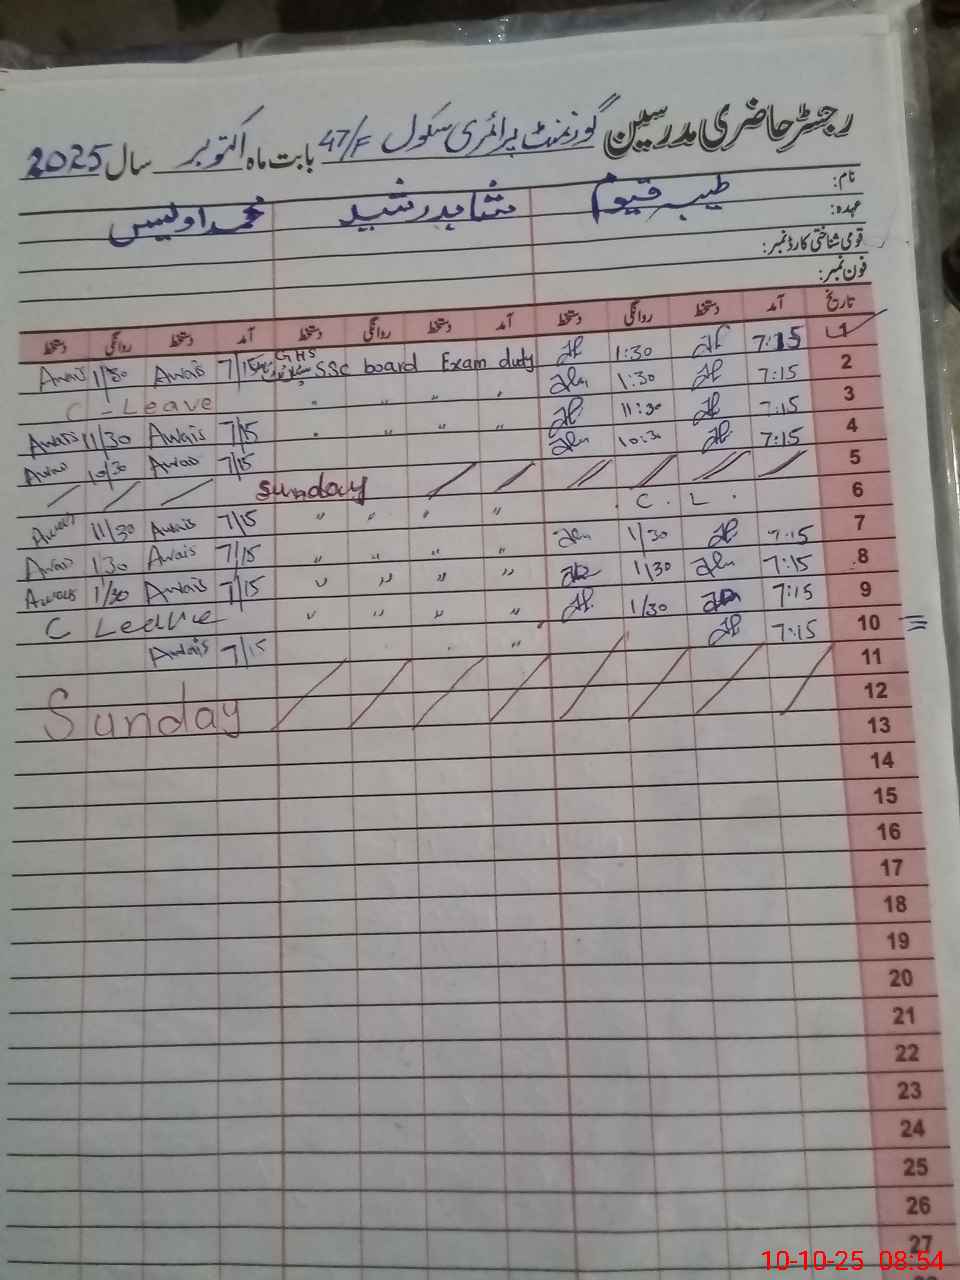 رجسٹر حاضری مدرسین گورنمنٹ پرائمری سکول 47/F بابت ماہ اکتوبر سال 2025
نام: طیب قیوم شاہد رشید محمد اویس
عہدہ:
قومی شناختی کارڈ نمبر:
فون نمبر:
تاریخ آمد دستخط روانگی دستخط آمد دستخط روانگی دستخط آمد دستخط روانگی دستخط
1 7:15 1:30 GHS SSC board Exam duty 7/15 Awais 1/30 Awais
2 7:15 1:30 " " " " C - Leave
3 7:15 11:30 " " " " 7/15 Awais 11/30 Awais
4 7:15 10:30 7/15 Awais 10/30 Awais
5 Sunday
6 C. L. " " " " 7/15 Awais 11/30 Awais
7 7:15 1/30 " " " " 7/15 Awais 1/30 Awais
8 7:15 1/30 " " " " 7/15 Awais 1/30 Awais
9 7:15 1/30 " " " " C Leave
10 7:15 " 7/15 Awais
11
12 Sunday
13
14
15
16
17
18
19
20
21
22
23
24
25
26
27
10-10-25 08:54